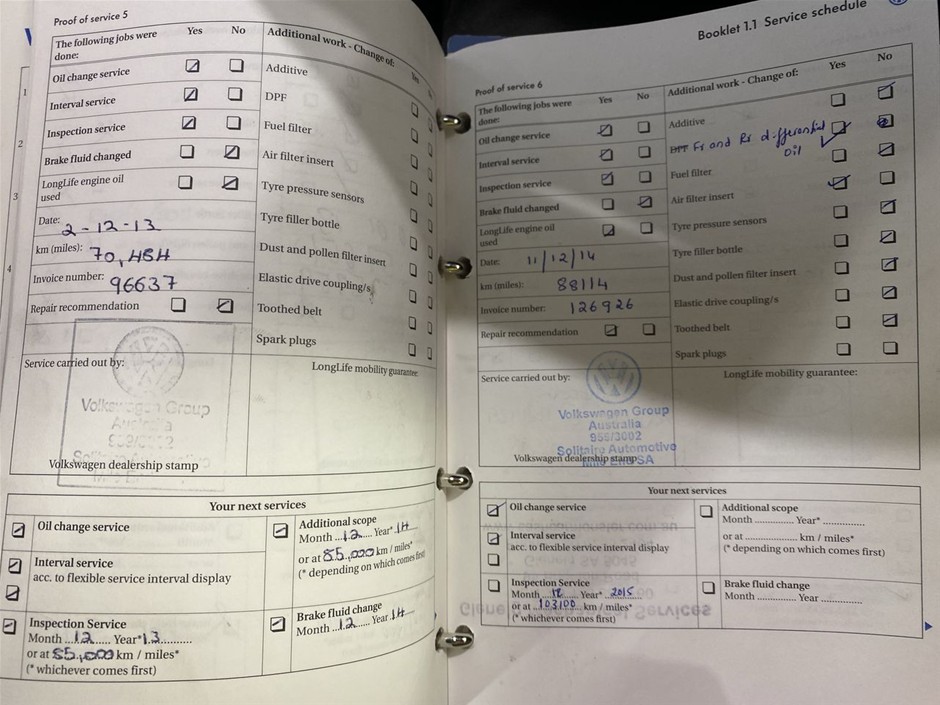 Proof of service 5
The following jobs were done:
Yes No
Additional work - Change of:
Yes
Oil change service
Interval service
Inspection service
Brake fluid changed
LongLife engine oil used
Date: 2-12-13
km (miles): 70,484
Invoice number: 96637
Repair recommendation
Additive
DPF
Fuel filter
Air filter insert
Tyre pressure sensors
Tyre filler bottle
Dust and pollen filter insert
Elastic drive coupling/s
Toothed belt
Spark plugs
Service carried out by:
LongLife mobility guarantee:
Volkswagen Group
Australia
Volkswagen dealership stamp
Your next services
Oil change service
Interval service
acc. to flexible service interval display
Inspection Service
Month ...12..... Year*13..........
or at 85,000 km / miles*
(* whichever comes first)
Additional scope
Month ...12..... Year*14...
or at 85,000 km / miles*
(* depending on which comes first)
Brake fluid change
Month ...12..... Year 14
Booklet 1.1 Service schedule
Proof of service 6
The following jobs were done:
Yes No
Additional work - Change of:
Yes No
Oil change service
Interval service
Inspection service
Brake fluid changed
LongLife engine oil used
Date: 11/12/14
km (miles): 88114
Invoice number: 126926
Repair recommendation
Additive
DPF Fr and Rr differential oil
Fuel filter
Air filter insert
Tyre pressure sensors
Tyre filler bottle
Dust and pollen filter insert
Elastic drive coupling/s
Toothed belt
Spark plugs
Service carried out by:
LongLife mobility guarantee:
Volkswagen Group
Australia
956/3002
Solitaire Automotive
Volkswagen dealership stamp
Mile End SA
Your next services
Oil change service
Interval service
acc. to flexible service interval display
Inspection Service
Month ....12.... Year* 2015
or at 103100 km / miles*
(* whichever comes first)
Additional scope
Month .............. Year* ..............
or at .................. km / miles*
(* depending on which comes first)
Brake fluid change
Month ........... Year ............
1
2
3
4